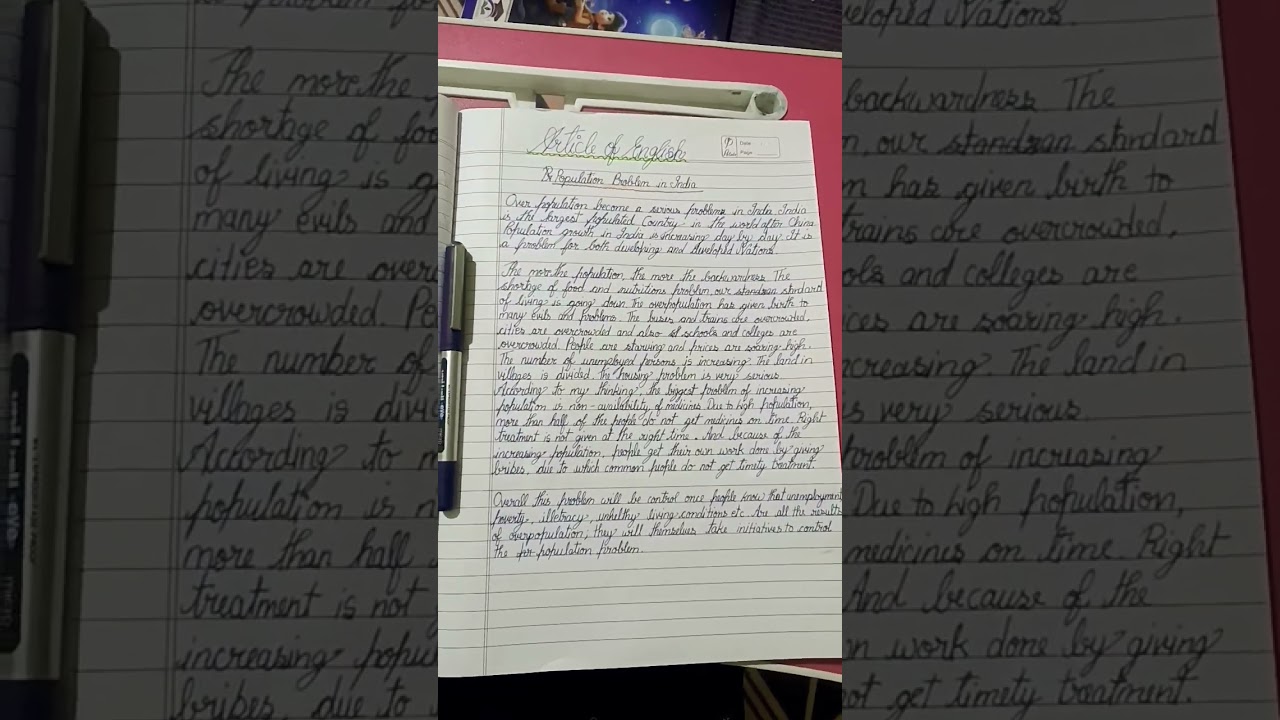 Article of English
Date
Page
Population Problem in India
Over population become a serious problems in India India
is the largest populated Country in the world after China
Population growth in India is increasing day by day. It is
a problem for both developing and developed Nations.
The more the population the more the backwardness. The
shortage of food and nutritions problem, our standran standard
of living is going down. The overpopulation has given birth to
many evils and problems. The buses and trains are overcrowded,
cities are overcrowded and also schools and colleges are
overcrowded. People are starving and prices are soaring high.
The number of unemployed persons is increasing. The land in
villages is divided. The housing problem is very serious.
According to my thinking, the biggest problem of increasing
population is non-availability of medicines. Due to high population,
more than half of the people do not get medicines on time. Right
treatment is not given at the right time. And because of the
increasing population, people get their own work done by giving
bribes, due to which common people do not get timety treatment.
Overall this problem will be control once people know that unemployment
poverty, illetracy, unhelthy living conditions etc. Are all the results
of overpopulation, they will themselves take initiatives to control
the population problem.